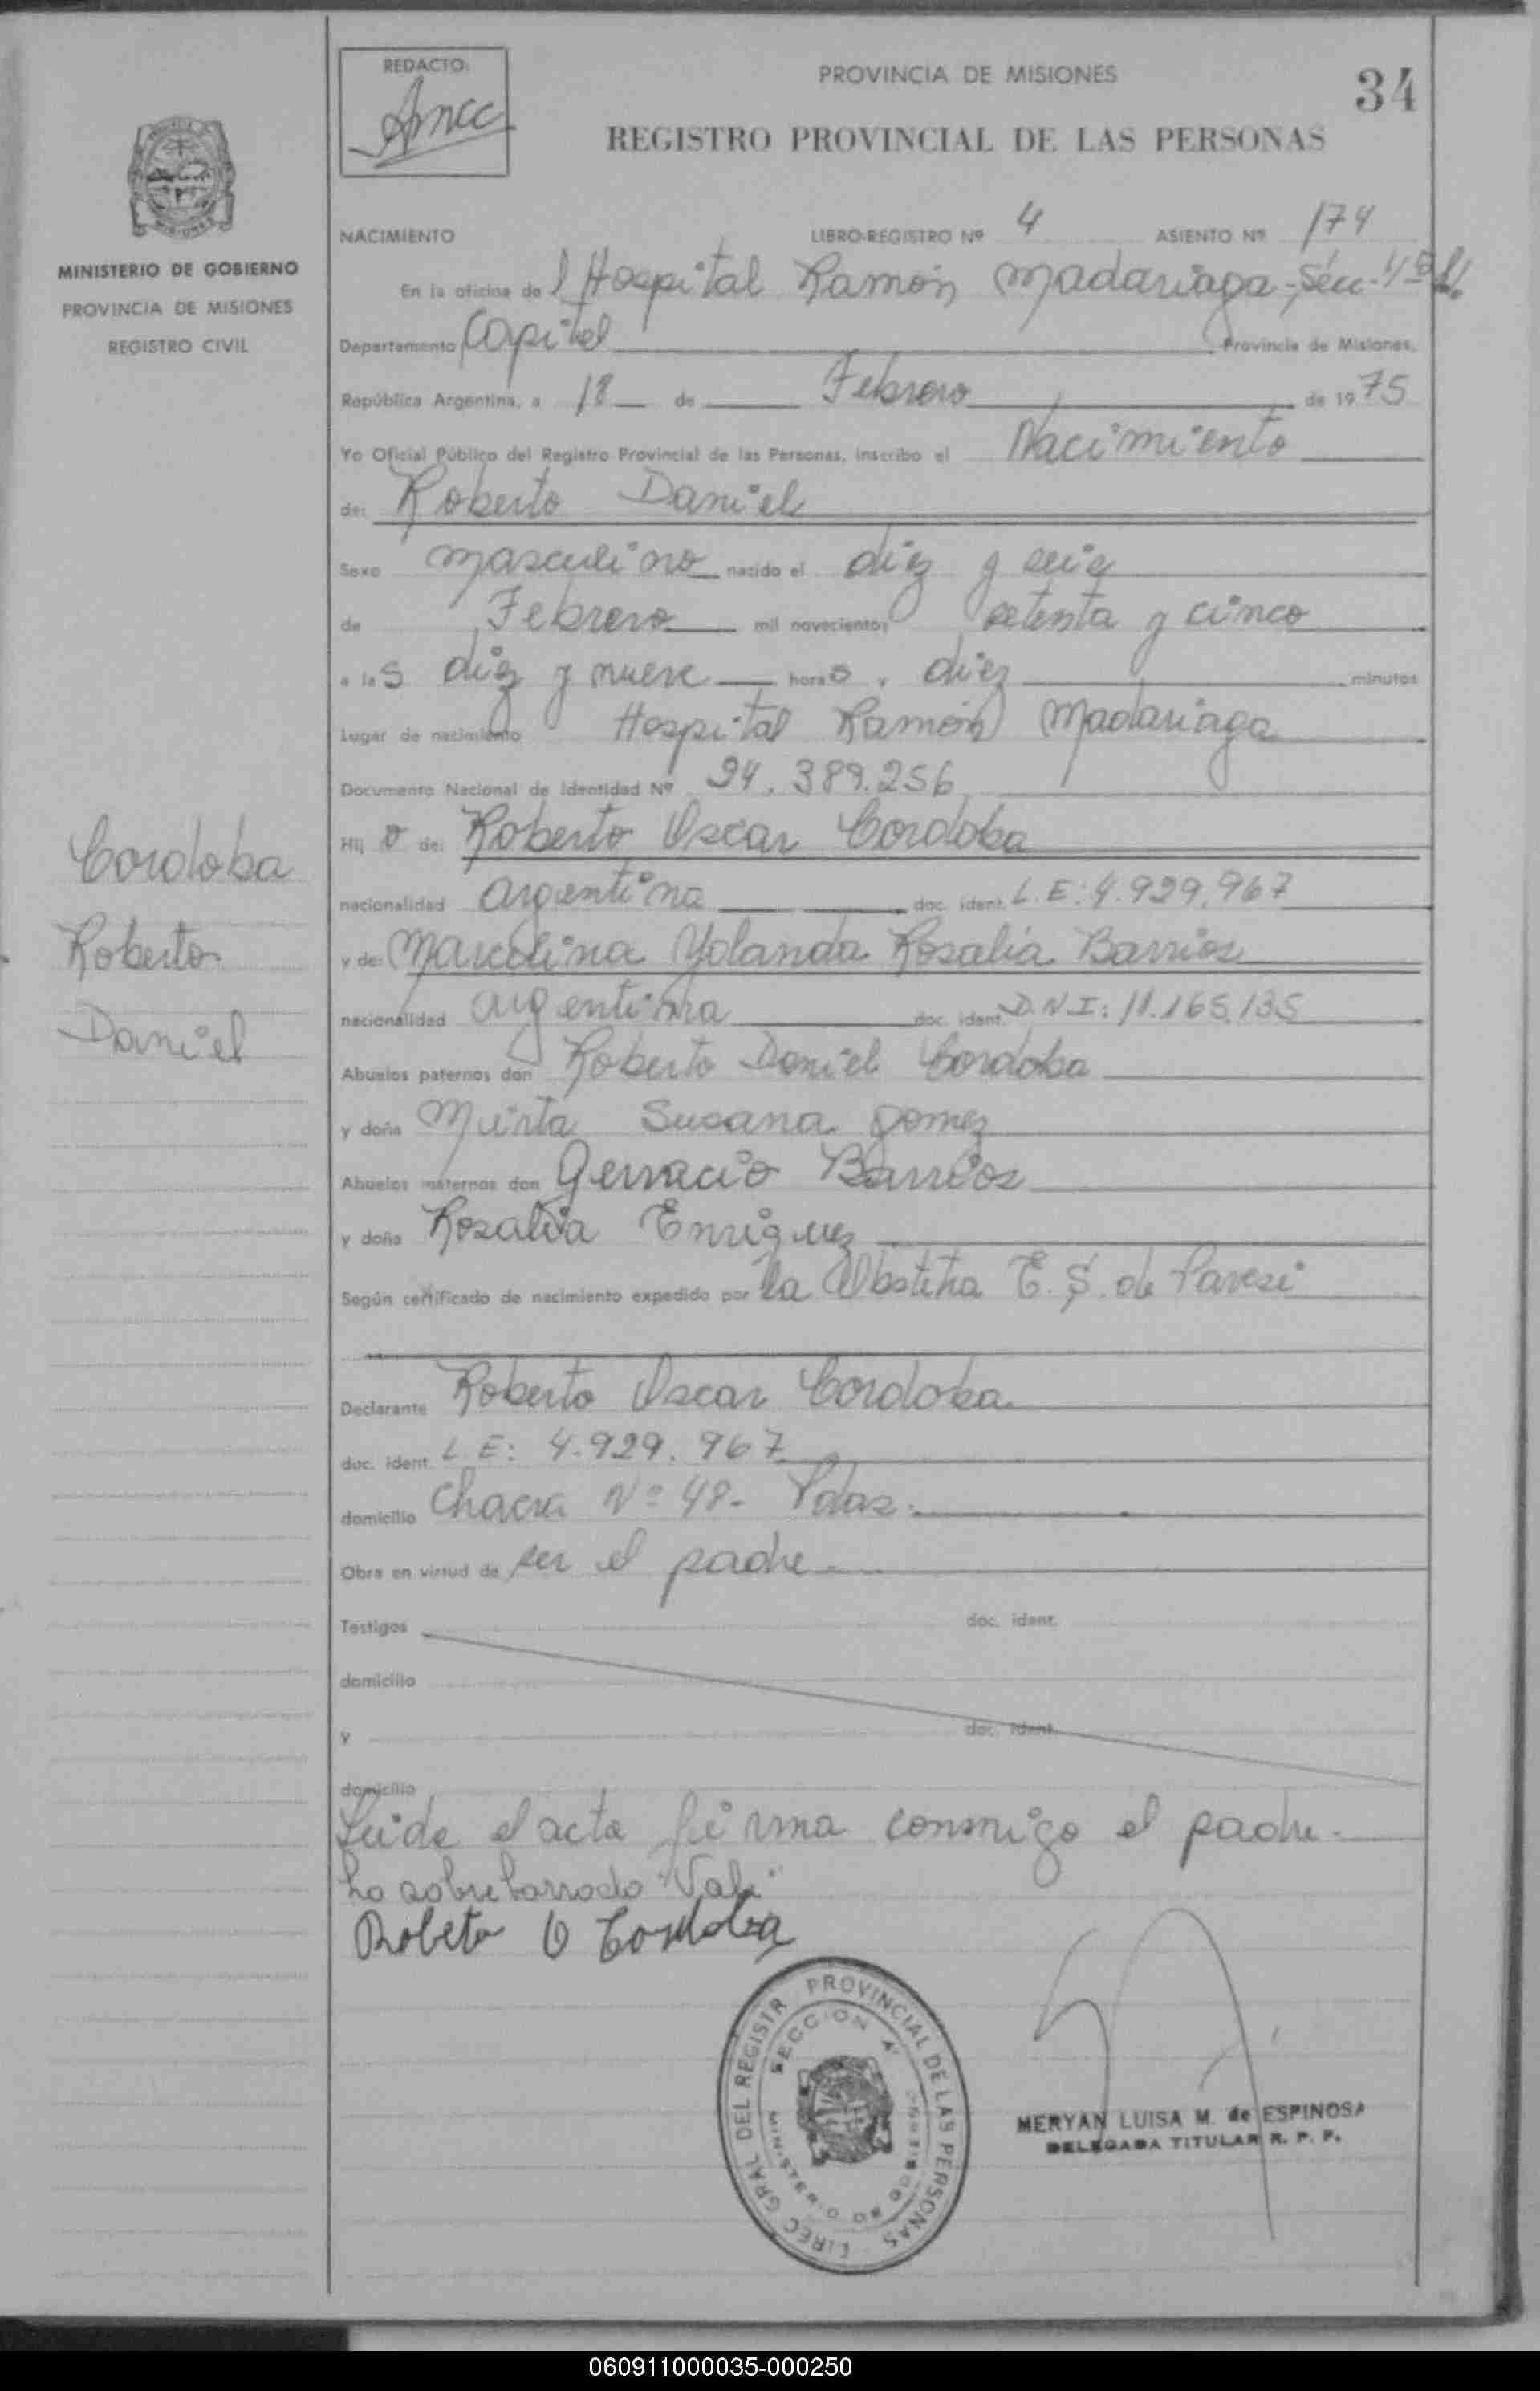 REDACTO:
PROVINCIA DE MISIONES
34
REGISTRO PROVINCIAL DE LAS PERSONAS
MISIONES
MINISTERIO DE GOBIERNO
PROVINCIA DE MISIONES
REGISTRO CIVIL
NACIMIENTO LIBRO-REGISTRO Nº 4 ASIENTO Nº 174
En la oficina del Hospital Ramón Madariaga - Sec. 4ª
Departamento Capital Provincia de Misiones,
República Argentina, a 18 de Febrero de 1975
Yo Oficial Público del Registro Provincial de las Personas, inscribo el Nacimiento
de: Roberto Daniel
Sexo masculino nacido el diez y seis
de Febrero mil novecientos setenta y cinco
a las diez y nueve horas y diez minutos
Lugar de nacimiento Hospital Ramón Madariaga
Documento Nacional de Identidad Nº 24.389.256
Hijo de: Roberto Oscar Cordoba
nacionalidad argentina doc. ident. L.E: 4.929.967
y de: Marcelina Yolanda Rosalia Barrios
nacionalidad argentina doc. ident. D.N.I: 11.165.135
Abuelos paternos don Roberto Daniel Cordoba
y doña Mirta Susana Gomez
Abuelos maternos don Gervacio Barrios
y doña Rosalia Enriquez
Según certificado de nacimiento expedido por la Obstetra E. S. de Pavesi
Declarante Roberto Oscar Cordoba
doc. ident. L E: 4.929.967
domicilio Chacra Nº 48 - Pdas.
Obra en virtud de ser el padre
Testigos doc. ident.
domicilio
y doc. ident.
domicilio
Leida el acta firma conmigo el padre.
Lo sobreborrado "Vale"
Robeto O Cordoba
Cordoba
Roberto
Daniel
DIREC GRAL DEL REGISTR PROVINCIAL DE LAS PERSONAS
SECCION 4ª
MINISTERIO DE GOBIERNO
MERYAN LUISA M. de ESPINOSA
DELEGADA TITULAR R. P. P.
060911000035-000250